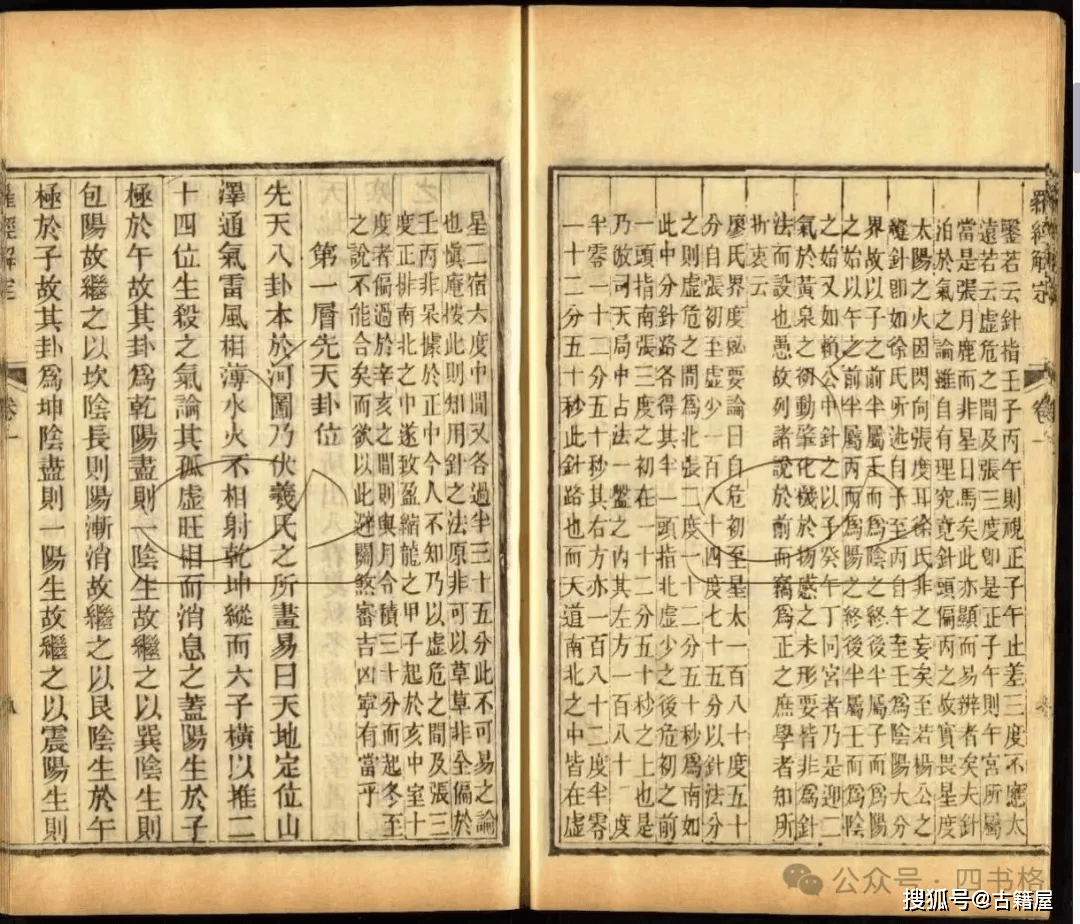 羅經解定
卷一
鑒若云針指壬子丙午則視正子午止差三度不應太
遠若云虛危之間及張三度卽是正子午則午宮所屬
當是張月鹿而非星日馬矣此亦顯而易辨者矣夫針
泊於氣之論雖自有理究竟針頭偏丙之故實畏星度
太陽之火因閃向張度耳徐氏非之妄矣至若楊公分
縫針卽如徐氏所逃自子至丙自午至壬爲陰陽大分
界故以子之前半屬壬而爲陰之終後半屬子而爲陽
之始以午之前半屬丙而爲陽之終後半屬壬而爲陰
之始又如賴公中針之以子癸午丁同宮者乃是迎二
氣於黃泉之初動肇化機於物感之未形要皆非爲針
法而設也愚故列諸說於前而竊爲正之庶學者知所
折衷云
廖氏界度祕要論曰自危初至星太一百八十度五十
分自張初至虛少一百八十四度七十五分以針法分
之則虛危之間爲北張二度一十二分五十秒爲南如
此中分針路各得其半一頭指北虛少之後危初之前
一頭指南張三度之初在一十二分五十秒之上也是
乃倣司天局中占法一盤之內其左方一百八十一度
半零一十二分五十秒其右方亦一百八十二度半零
一十二分五十秒此針路也而天道南北之中皆在虛
星二宿六度中間又各過半三十五分此不可易之論
也愼庵按此則知用針之法原非可以草草非全偏於
壬丙非呆據於正中今人不知乃以虛危之間及張三
度正排南北之中遂致盈縮龍之甲子起於亥中室十
度者偏過於辛亥之間則與月令積三十分而起冬至
之說不能合矣而欲以此避關煞審吉凶寧有當乎
第一層先天卦位
先天八卦本於河圖乃伏羲氏之所畫易曰天地定位山
澤通氣雷風相薄水火不相射乾坤縱而六子橫以推二
十四位生殺之氣論其孤虛旺相而消息之蓋陽生於子
極於午故其卦爲乾陽盡則一陰生故繼之以巽陰生則
包陽故繼之以坎陰長則陽漸消故繼之以艮陰生於午
極於子故其卦爲坤陰盡則一陽生故繼之以震陽生則
羅經解定
卷一
公众号·四书格
搜狐号@古籍屋